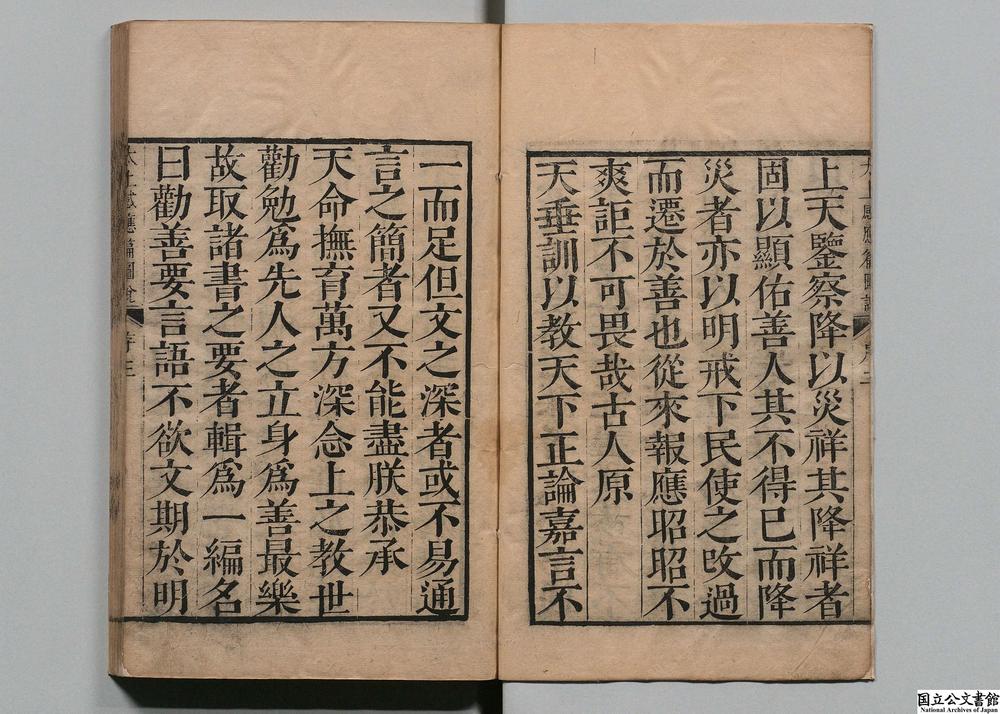 上天鑒察降以災祥其降祥者
固以顯佑善人其不得已而降
災者亦以明戒下民使之改過
而遷於善也從來報應昭昭不
爽詎不可畏哉古人原
天垂訓以教天下正論嘉言不
一而足但文之深者或不易通
言之簡者又不能盡朕恭承
天命撫育萬方深念上之教世
勸勉爲先人之立身爲善最樂
故取諸書之要者輯爲一編名
曰勸善要言語不欲文期於明
国立公文書館
National Archives of Japan